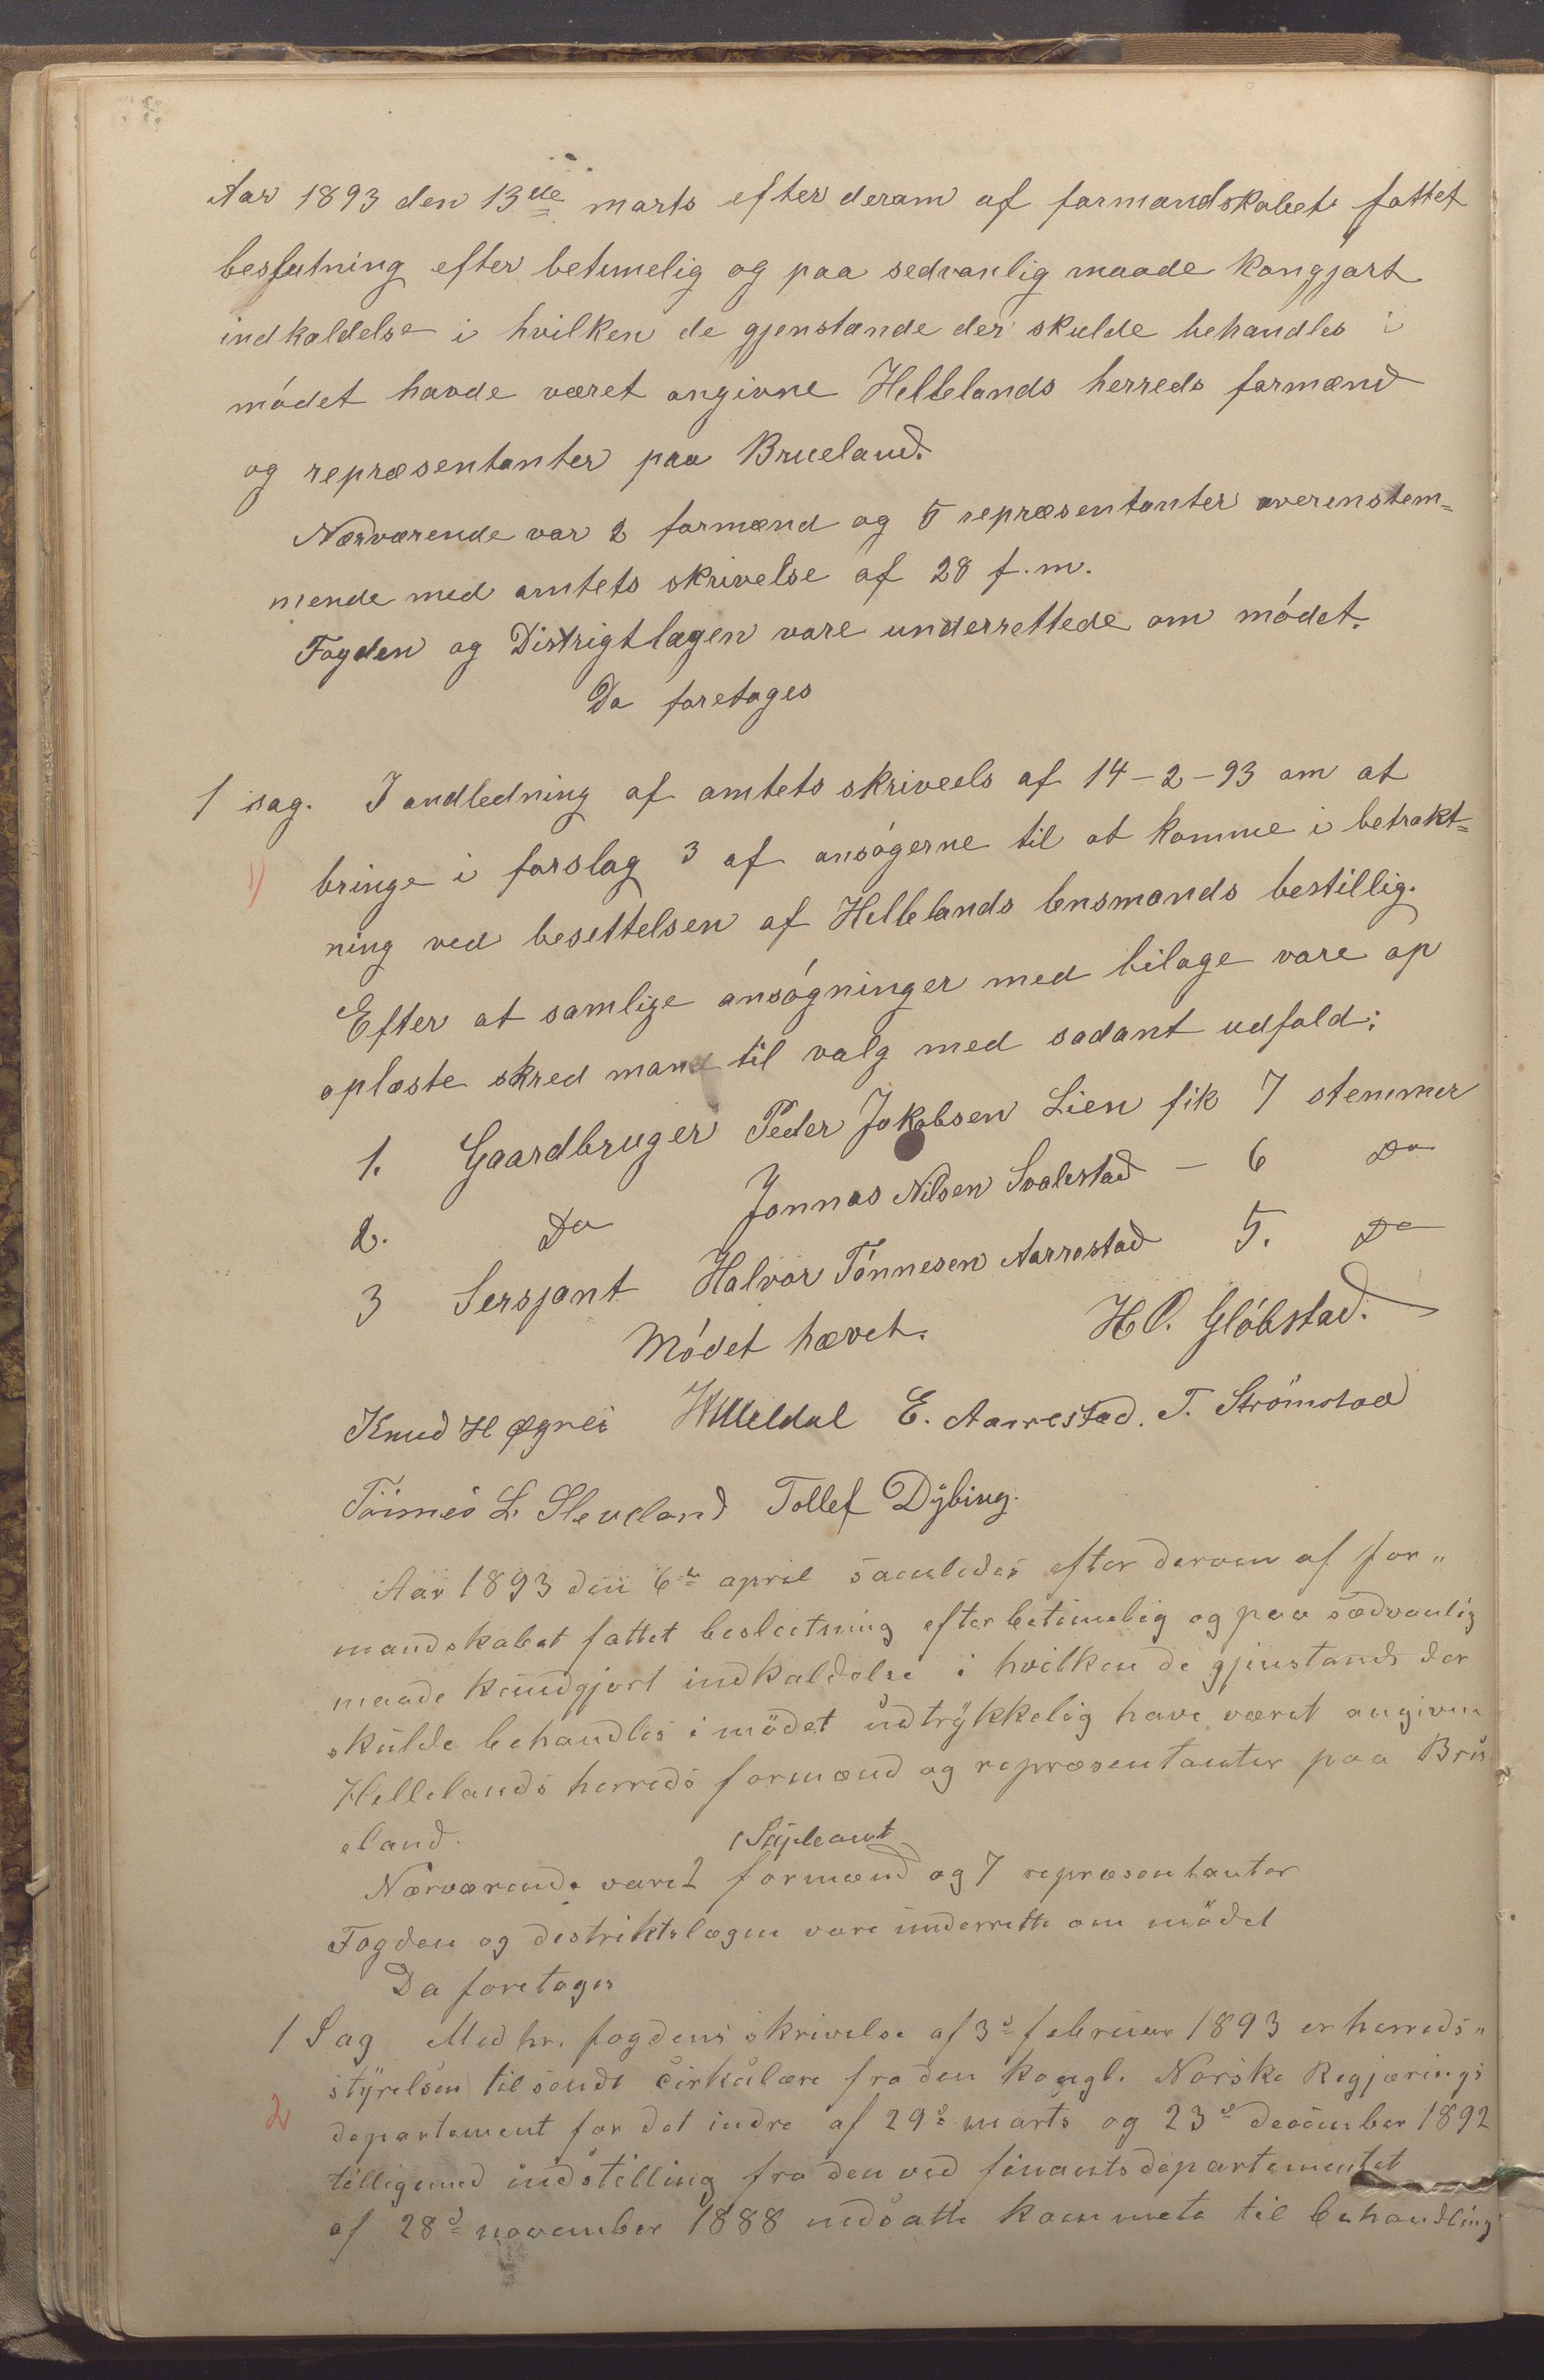 Aar 1893 den 13de marts efter derom af formandskabet fattet
beslutning efter betimelig og paa sedvanlig maade kongjort
indkaldelse i hvilken de gjenstande der skulde behandles i
mødet havde været angivne Hellelands herreds formænd
og repræsentanter paa Brueland.
Nærværende var 2 formænd og 5 repræsentanter overenstem=
mende med amtets skrivelse af 28 f.m.
Fogden og Distrigtlægen vare underrettede om mødet.
Da foretages
1 sag. I andledning af amtets skriveels af 14-2-93 om at
1) bringe i forslag 3 af ansøgerne til at komme i betrakt=
ning ved besettelsen af Hellelands lensmands bestillig.
Efter at samlige ansøgninger med bilage vare op
oplæste skred man til valg med sadant udfald:
1. Gaardbruger Peder Jakobsen Lien fik 7 stemmer
2. Do Jonnas Nilsen Svalestad – 6 Do
3 Sersjant Halvor Tønnesen Aarrestad 5. Do
Mødet hævet. H O. Gløbstad.
Knud H Øgrei E. Aarrestad. T. Strömstad
Tönnes L. Sleveland Tollef Dÿbing.
Aar 1893 den 6te april samledes efter derom af for„
mandskabet fattet beslutning efter betimelig og paa sædvanlig
maade kundgjort indkaldelse i hvilken de gjenstande der
skulde behandles i mödet udtrÿkkelig have været angivne
Hellelands herreds formænd og repræsentanter paa Bru
eland.
1 Supleant
Nærværende vare 2 formænd og 7 repræsentanter
Fogden og distriktslægen vare underrette om mödet
Da foretages
1 Sag Med hr. fogdens skrivelse af 3d februar 1893 er herreds„
stÿrelsen tilsendt cirkulære fra den kongl. Norske Regjærings
2 departement for det indre af 29d marts og 23d december 1892
tilligemed indstilling fra den ved finantsdepartementet
af 28d november 1888 nedsatte kommete til behandling